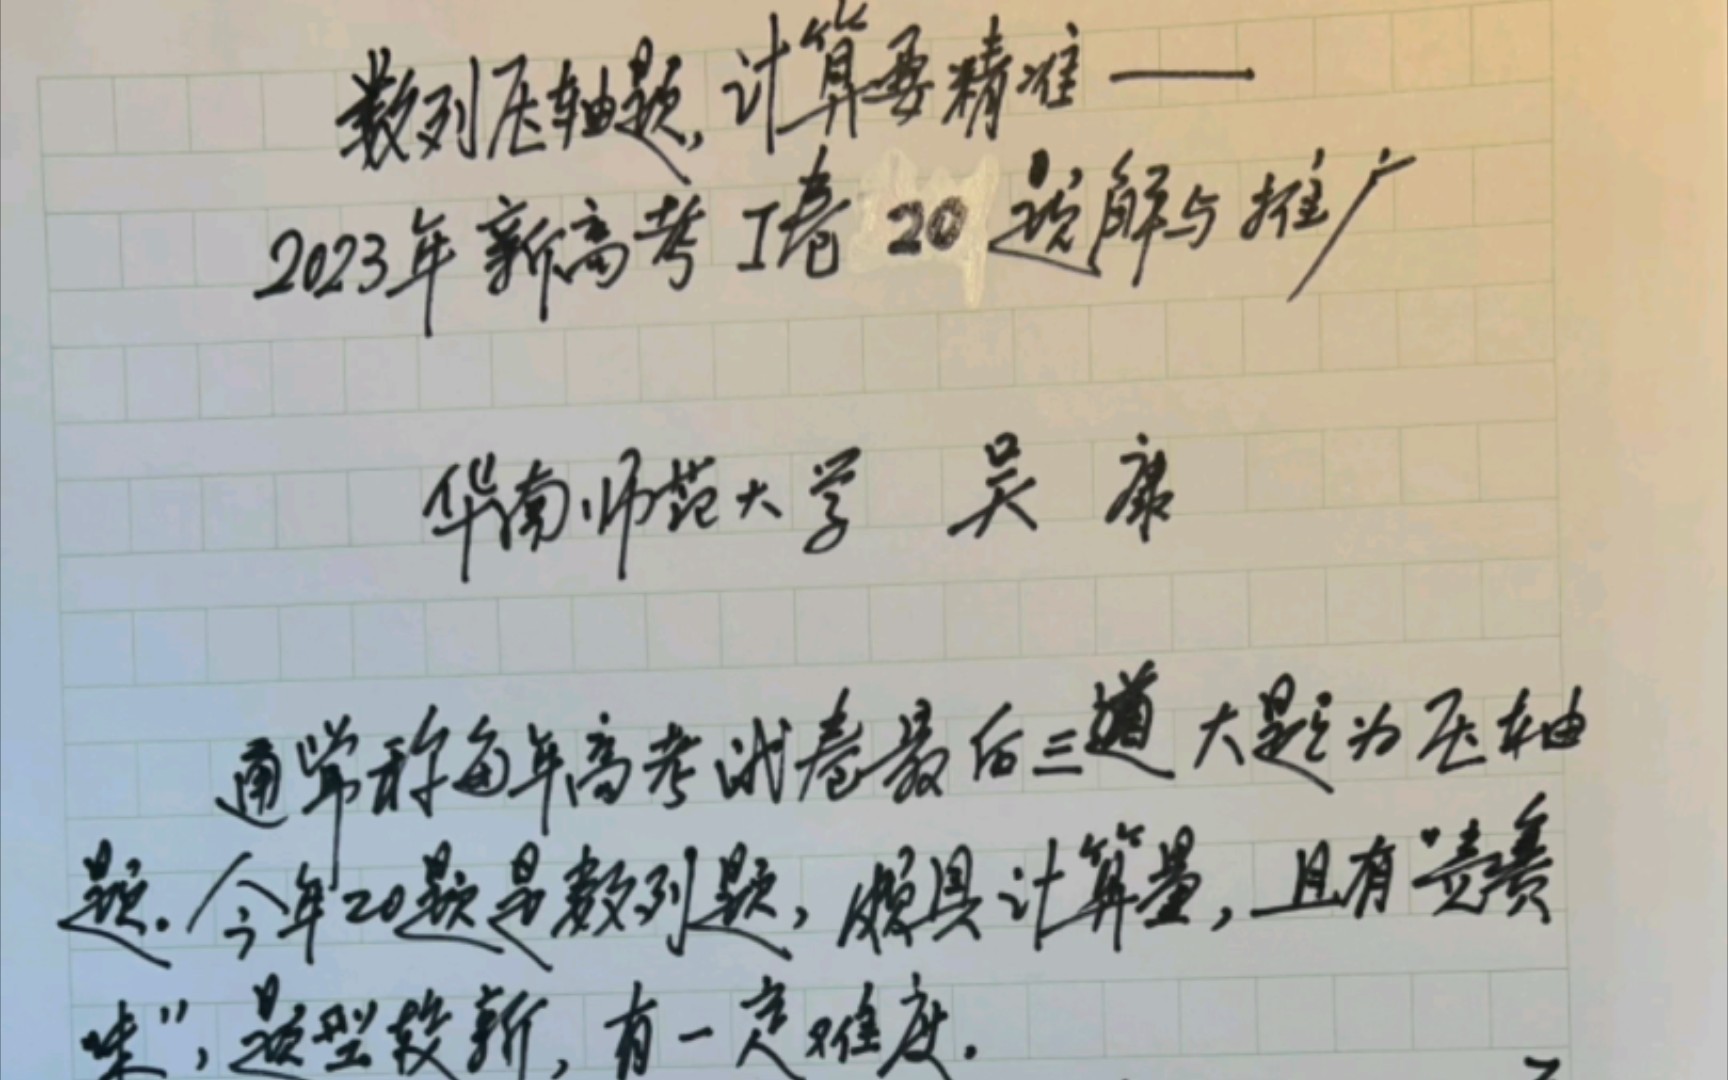 数列压轴题,计算要精准——
2023年新高考I卷20题解与推广
华南师范大学 吴康
通常称每年高考试卷最后三道大题为压轴
题.今年20题是数列题,颇具计算量,且有“竞赛
味”,题型较新,有一定难度.